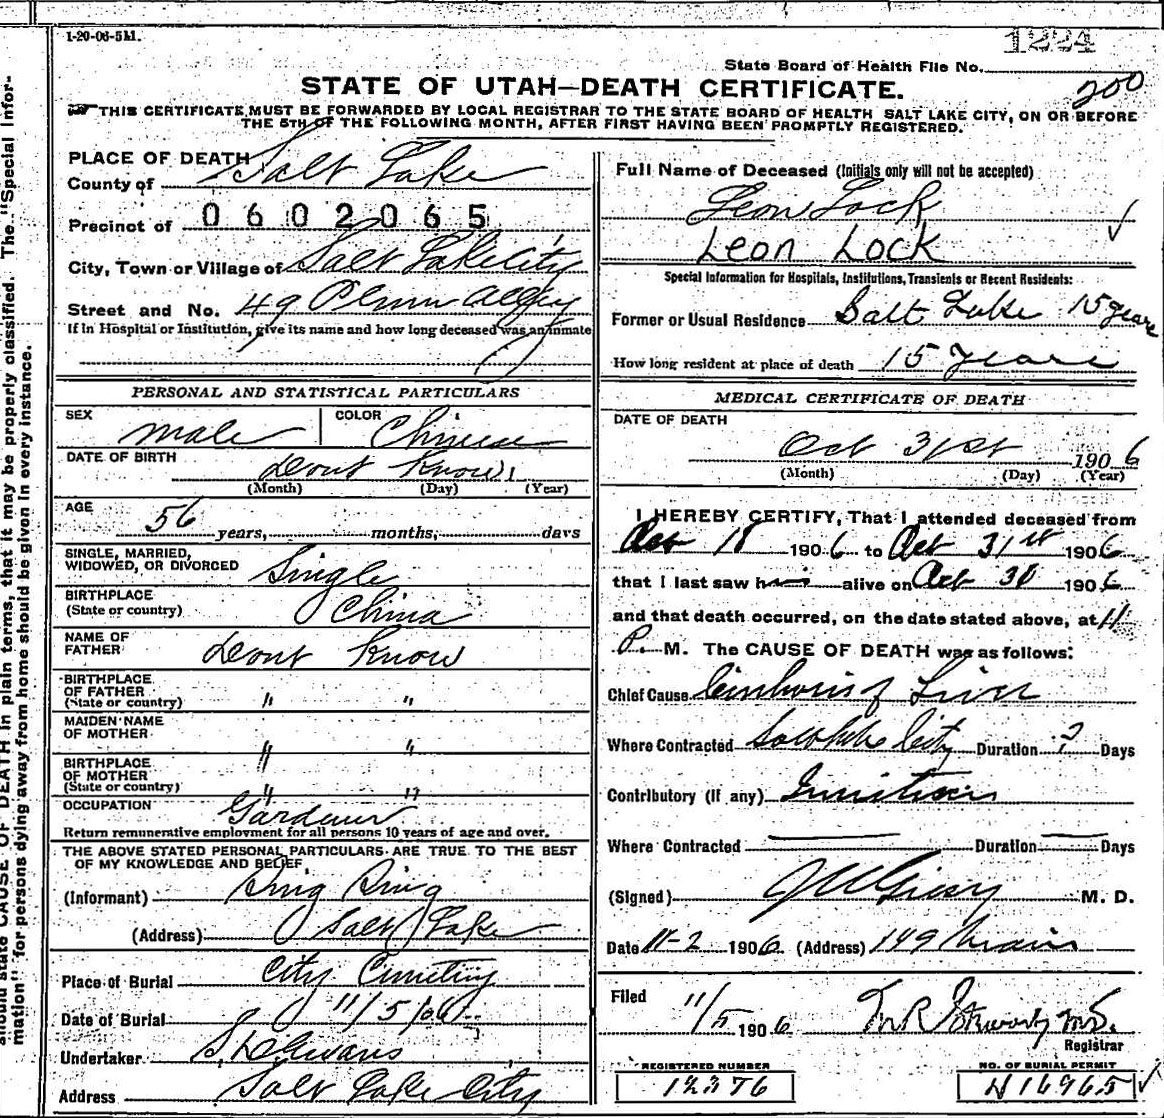 1-20-06-5M.
1224
State Board of Health File No.
200
STATE OF UTAH—DEATH CERTIFICATE.
THIS CERTIFICATE MUST BE FORWARDED BY LOCAL REGISTRAR TO THE STATE BOARD OF HEALTH SALT LAKE CITY, ON OR BEFORE
THE 5TH OF THE FOLLOWING MONTH, AFTER FIRST HAVING BEEN PROMPTLY REGISTERED.
PLACE OF DEATH
County of Salt Lake
Precinct of 0602065
City, Town or Village of Salt Lake City
Street and No. 49 Plum Alley
If in Hospital or Institution, give its name and how long deceased was an inmate
PERSONAL AND STATISTICAL PARTICULARS
SEX male COLOR Chinese
DATE OF BIRTH Dont Know
(Month) (Day) (Year)
AGE 56 years, months, days
SINGLE, MARRIED,
WIDOWED, OR DIVORCED Single
BIRTHPLACE
(State or country) China
NAME OF
FATHER Dont Know
BIRTHPLACE
OF FATHER
(State or country) " "
MAIDEN NAME
OF MOTHER " "
BIRTHPLACE
OF MOTHER
(State or country) " "
OCCUPATION Gardener
Return remunerative employment for all persons 10 years of age and over.
THE ABOVE STATED PERSONAL PARTICULARS ARE TRUE TO THE BEST
OF MY KNOWLEDGE AND BELIEF
(Informant)
(Address) Salt Lake
Place of Burial City Cemetery
Date of Burial 11/5/06
Undertaker S. D. Evans
Address Salt Lake City
Full Name of Deceased (Initials only will not be accepted)
Leon Lock
Leon Lock
Special Information for Hospitals, Institutions, Transients or Recent Residents:
Former or Usual Residence Salt Lake 15 years
How long resident at place of death 15 years
MEDICAL CERTIFICATE OF DEATH
DATE OF DEATH
Oct 31st 1906
(Month) (Day) (Year)
I HEREBY CERTIFY, That I attended deceased from
Oct 18 1906 to Oct 31st 1906
that I last saw him alive on Oct 30 1906
and that death occurred, on the date stated above, at 11
P. M. The CAUSE OF DEATH was as follows:
Chief Cause Cirrhosis of Liver
Where Contracted Salt Lake City Duration ? Days
Contributory (if any)
Where Contracted Duration Days
(Signed) M. D.
Date 11-2 1906 (Address) 149 Main
Filed 11/5 1906 M.D.
Registrar
REGISTERED NUMBER
12376
NO. OF BURIAL PERMIT
N16965
The "Special Infor-
should state CAUSE OF DEATH in plain terms, that it may be properly classified.
mation" for persons dying away from home should be given in every instance.